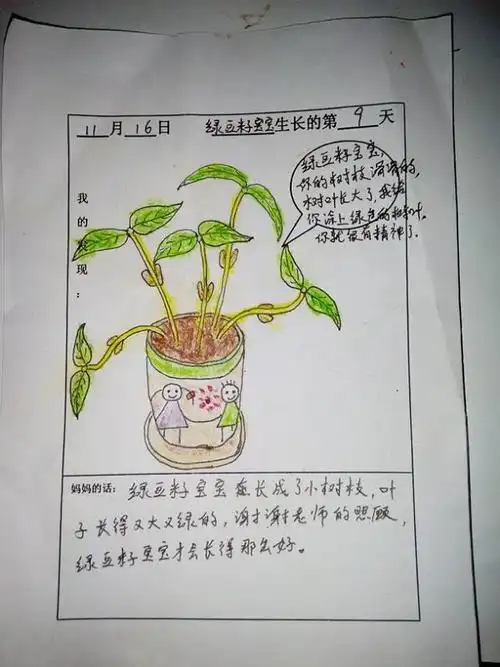 11月16日 绿豆籽宝宝生长的第9天
我的发现:
绿豆籽宝宝,
你的树枝滑滑的,
树叶长大了,我给
你涂上绿色的树叶.
你就很有精神了.
妈妈的话: 绿豆籽宝宝在长成了小树枝,叶
子长得又大又绿的,谢谢老师的照顾,
绿豆籽宝宝才会长得那么好。